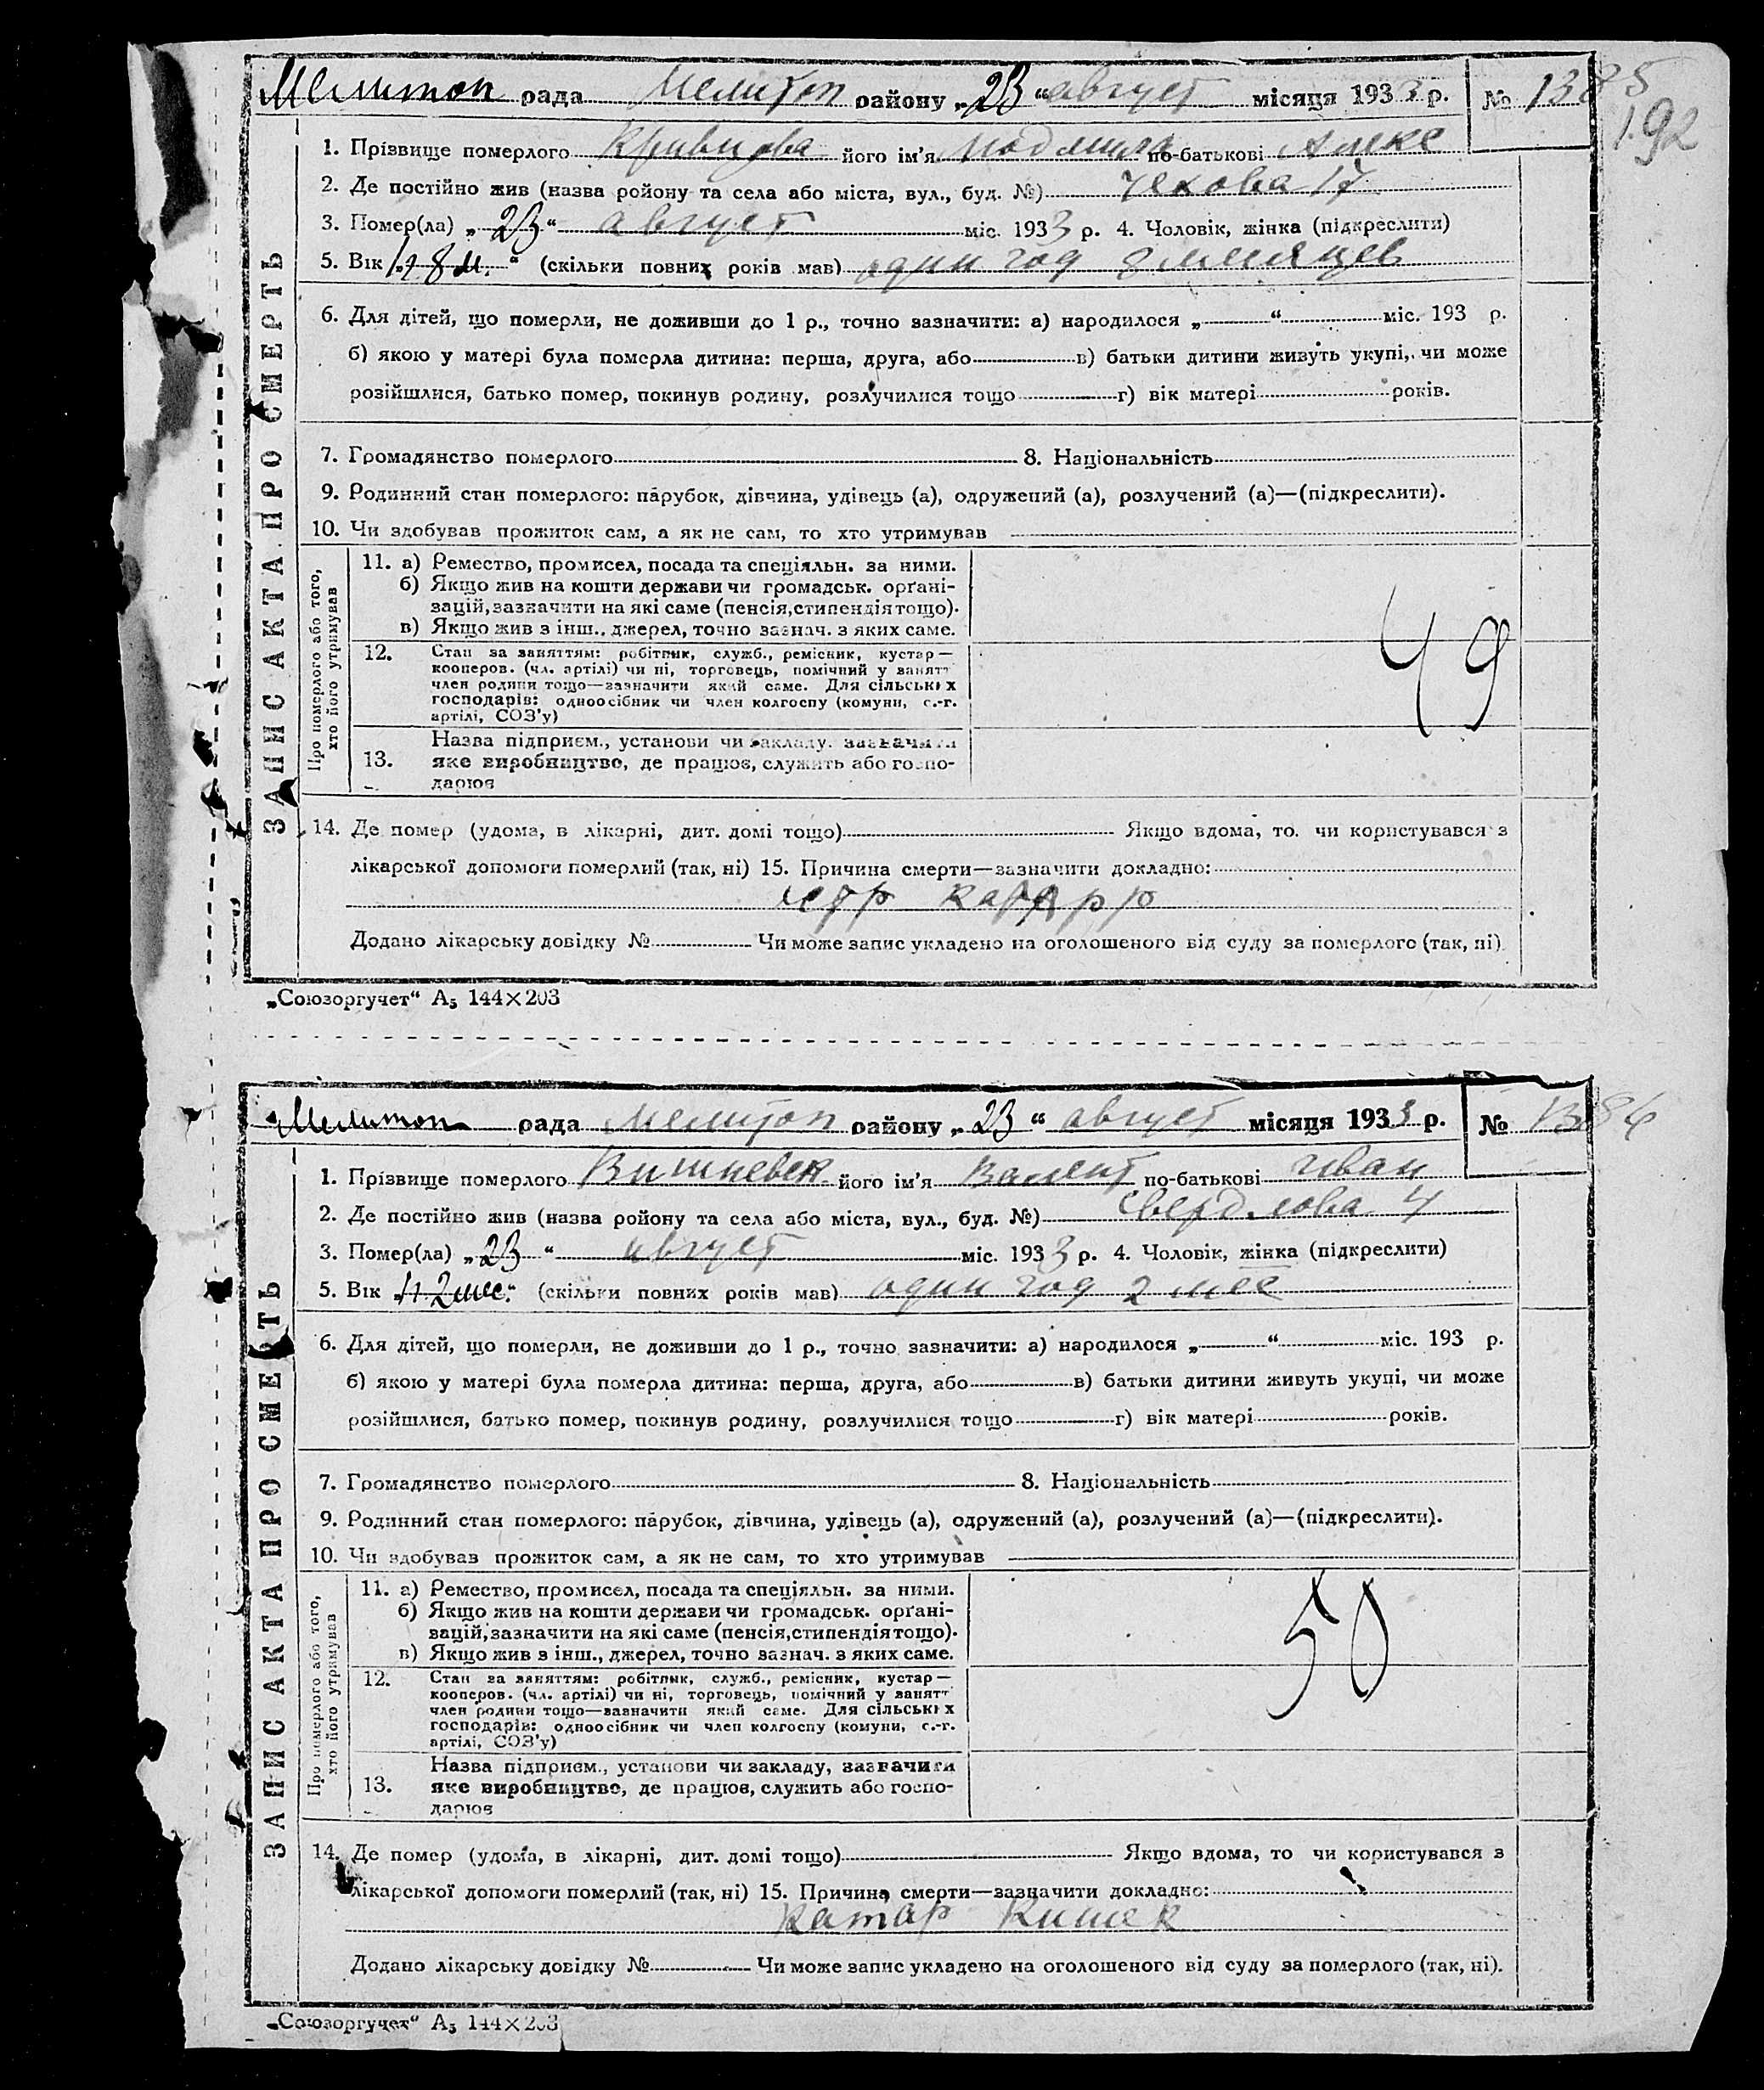 Мелитоп рада Мелитоп району „23“ август місяця 1933 р. № 1385
192
1. Прізвище померлого Кравцова його ім'я Людмила по-батькові Алекс
2. Де постійно жив (назва ройону та села або міста, вул., буд. №) Чехова 17
3. Помер(ла) „23“ август міс. 1933 р. 4. Чоловік, жінка (підкреслити)
5. Вік „1 г 8 м.“ (скільки повних років мав) один год 8 месяцев
6. Для дітей, що померли, не доживши до 1 р., точно зазначити: а) народилося „ “ міс. 193 р.
б) якою у матері була померла дитина: перша, друга, або в) батьки дитини живуть укупі, чи може
розійшлися, батько помер, покинув родину, розлучилися тощо г) вік матері років.
7. Громадянство померлого 8. Національність
9. Родинний стан померлого: парубок, дівчина, удівець (а), одружений (а), розлучений (а)—(підкреслити).
10. Чи здобував прожиток сам, а як не сам, то хто утримував
ЗАПИС АКТА ПРО СМЕРТЬ
Про померлого або того,
хто його утримував
11. а) Ремество, промисел, посада та спеціяльн. за ними.
б) Якщо жив на кошти держави чи громадськ. орґані-
зацій, зазначити на які саме (пенсія, стипендія тощо).
в) Якщо жив з інш., джерел, точно зазнач. з яких саме.
12. Стан за заняттям: робітник, служб., ремісник, кустар—
кооперов. (чл. артілі) чи ні, торговець, помічний у занятт
член родини тощо—зазначити який саме. Для сільських
господарів: одноосібник чи член колгоспу (комуни, с.-г.
артілі, СОЗ'у)
49
Назва підприєм., установи чи закладу, зазначити
13. яке виробництво, де працює, служить або госпо-
дарює
14. Де помер (удома, в лікарні, дит. домі тощо) Якщо вдома, то чи користувався з
лікарської допомоги померлий (так, ні) 15. Причина смерти—зазначити докладно:
Додано лікарську довідку № Чи може запис укладено на оголошеного від суду за померлого (так, ні).
„Союзоргучет“ А₅ 144×203
Мелитоп рада Мелитоп району „23“ август місяця 1933 р. № 1386
1. Прізвище померлого Вишневск його ім'я Валент по-батькові Иван
2. Де постійно жив (назва ройону та села або міста, вул., буд. №) Свердлова 4
3. Помер(ла) „23“ август міс. 1933 р. 4. Чоловік, жінка (підкреслити)
5. Вік „1 г. 2 мес.“ (скільки повних років мав) один год 2 мес
6. Для дітей, що померли, не доживши до 1 р., точно зазначити: а) народилося „ “ міс. 193 р.
б) якою у матері була померла дитина: перша, друга, або в) батьки дитини живуть укупі, чи може
розійшлися, батько помер, покинув родину, розлучилися тощо г) вік матері років.
7. Громадянство померлого 8. Національність
9. Родинний стан померлого: парубок, дівчина, удівець (а), одружений (а), розлучений (а)—(підкреслити).
10. Чи здобував прожиток сам, а як не сам, то хто утримував
ЗАПИС АКТА ПРО СМЕРТЬ
Про померлого або того,
хто його утримував
11. а) Ремество, промисел, посада та спеціяльн. за ними.
б) Якщо жив на кошти держави чи громадськ. орґані-
зацій, зазначити на які саме (пенсія, стипендія тощо).
в) Якщо жив з інш., джерел, точно зазнач. з яких саме.
50
12. Стан за заняттям: робітник, служб., ремісник, кустар—
кооперов. (чл. артілі) чи ні, торговець, помічний у занятт
член родини тощо—зазначити який саме. Для сільських
господарів: одноосібник чи член колгоспу (комуни, с.-г.
артілі, СОЗ'у)
Назва підприєм., установи чи закладу, зазначити
13. яке виробництво, де працює, служить або госпо-
дарює
14. Де помер (удома, в лікарні, дит. домі тощо) Якщо вдома, то чи користувався з
лікарської допомоги померлий (так, ні) 15. Причина смерти—зазначити докладно:
Катар Кишек
Додано лікарську довідку № Чи може запис укладено на оголошеного від суду за померлого (так, ні).
„Союзоргучет“ А₅ 144×203